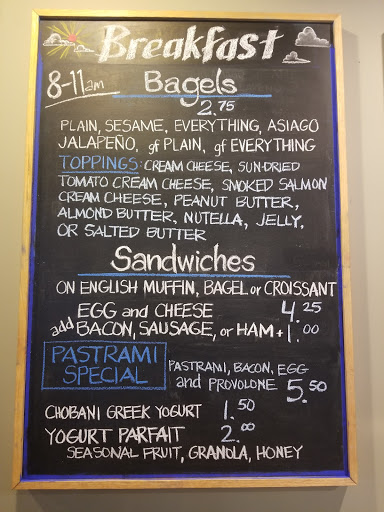 Breakfast
8-11am
Bagels
2.75
PLAIN, SESAME, EVERYTHING, ASIAGO
JALAPEÑO, gf PLAIN, gf EVERYTHING
TOPPINGS: CREAM CHEESE, SUN-DRIED
TOMATO CREAM CHEESE, SMOKED SALMON
CREAM CHEESE, PEANUT BUTTER,
ALMOND BUTTER, NUTELLA, JELLY,
OR SALTED BUTTER
Sandwiches
ON ENGLISH MUFFIN, BAGEL or CROISSANT
EGG and CHEESE 4.25
add BACON, SAUSAGE, or HAM +1.00
PASTRAMI SPECIAL
PASTRAMI, BACON, EGG
and PROVOLONE 5.50
CHOBANI GREEK YOGURT 1.50
YOGURT PARFAIT 2.00
SEASONAL FRUIT, GRANOLA, HONEY